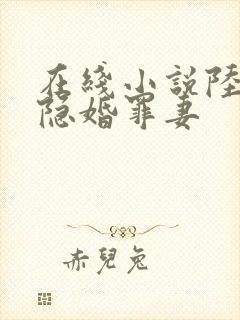 在綫小説陸
隐婚罪妻
赤兒兔